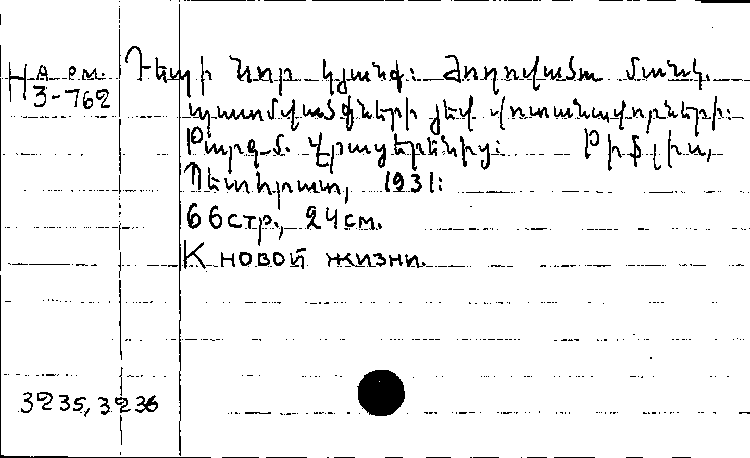 Н Арм. Դեպի նոր կյանք: Ժողովածու մանկ.
3-762 պատմվածքների յեվ վոտանավորների:
Թարգմ. վրացերենից: Թիֆլիս,
Պետհրատ, 1931:
66 стр., 24 см.
К новой жизни.
3235, 3236